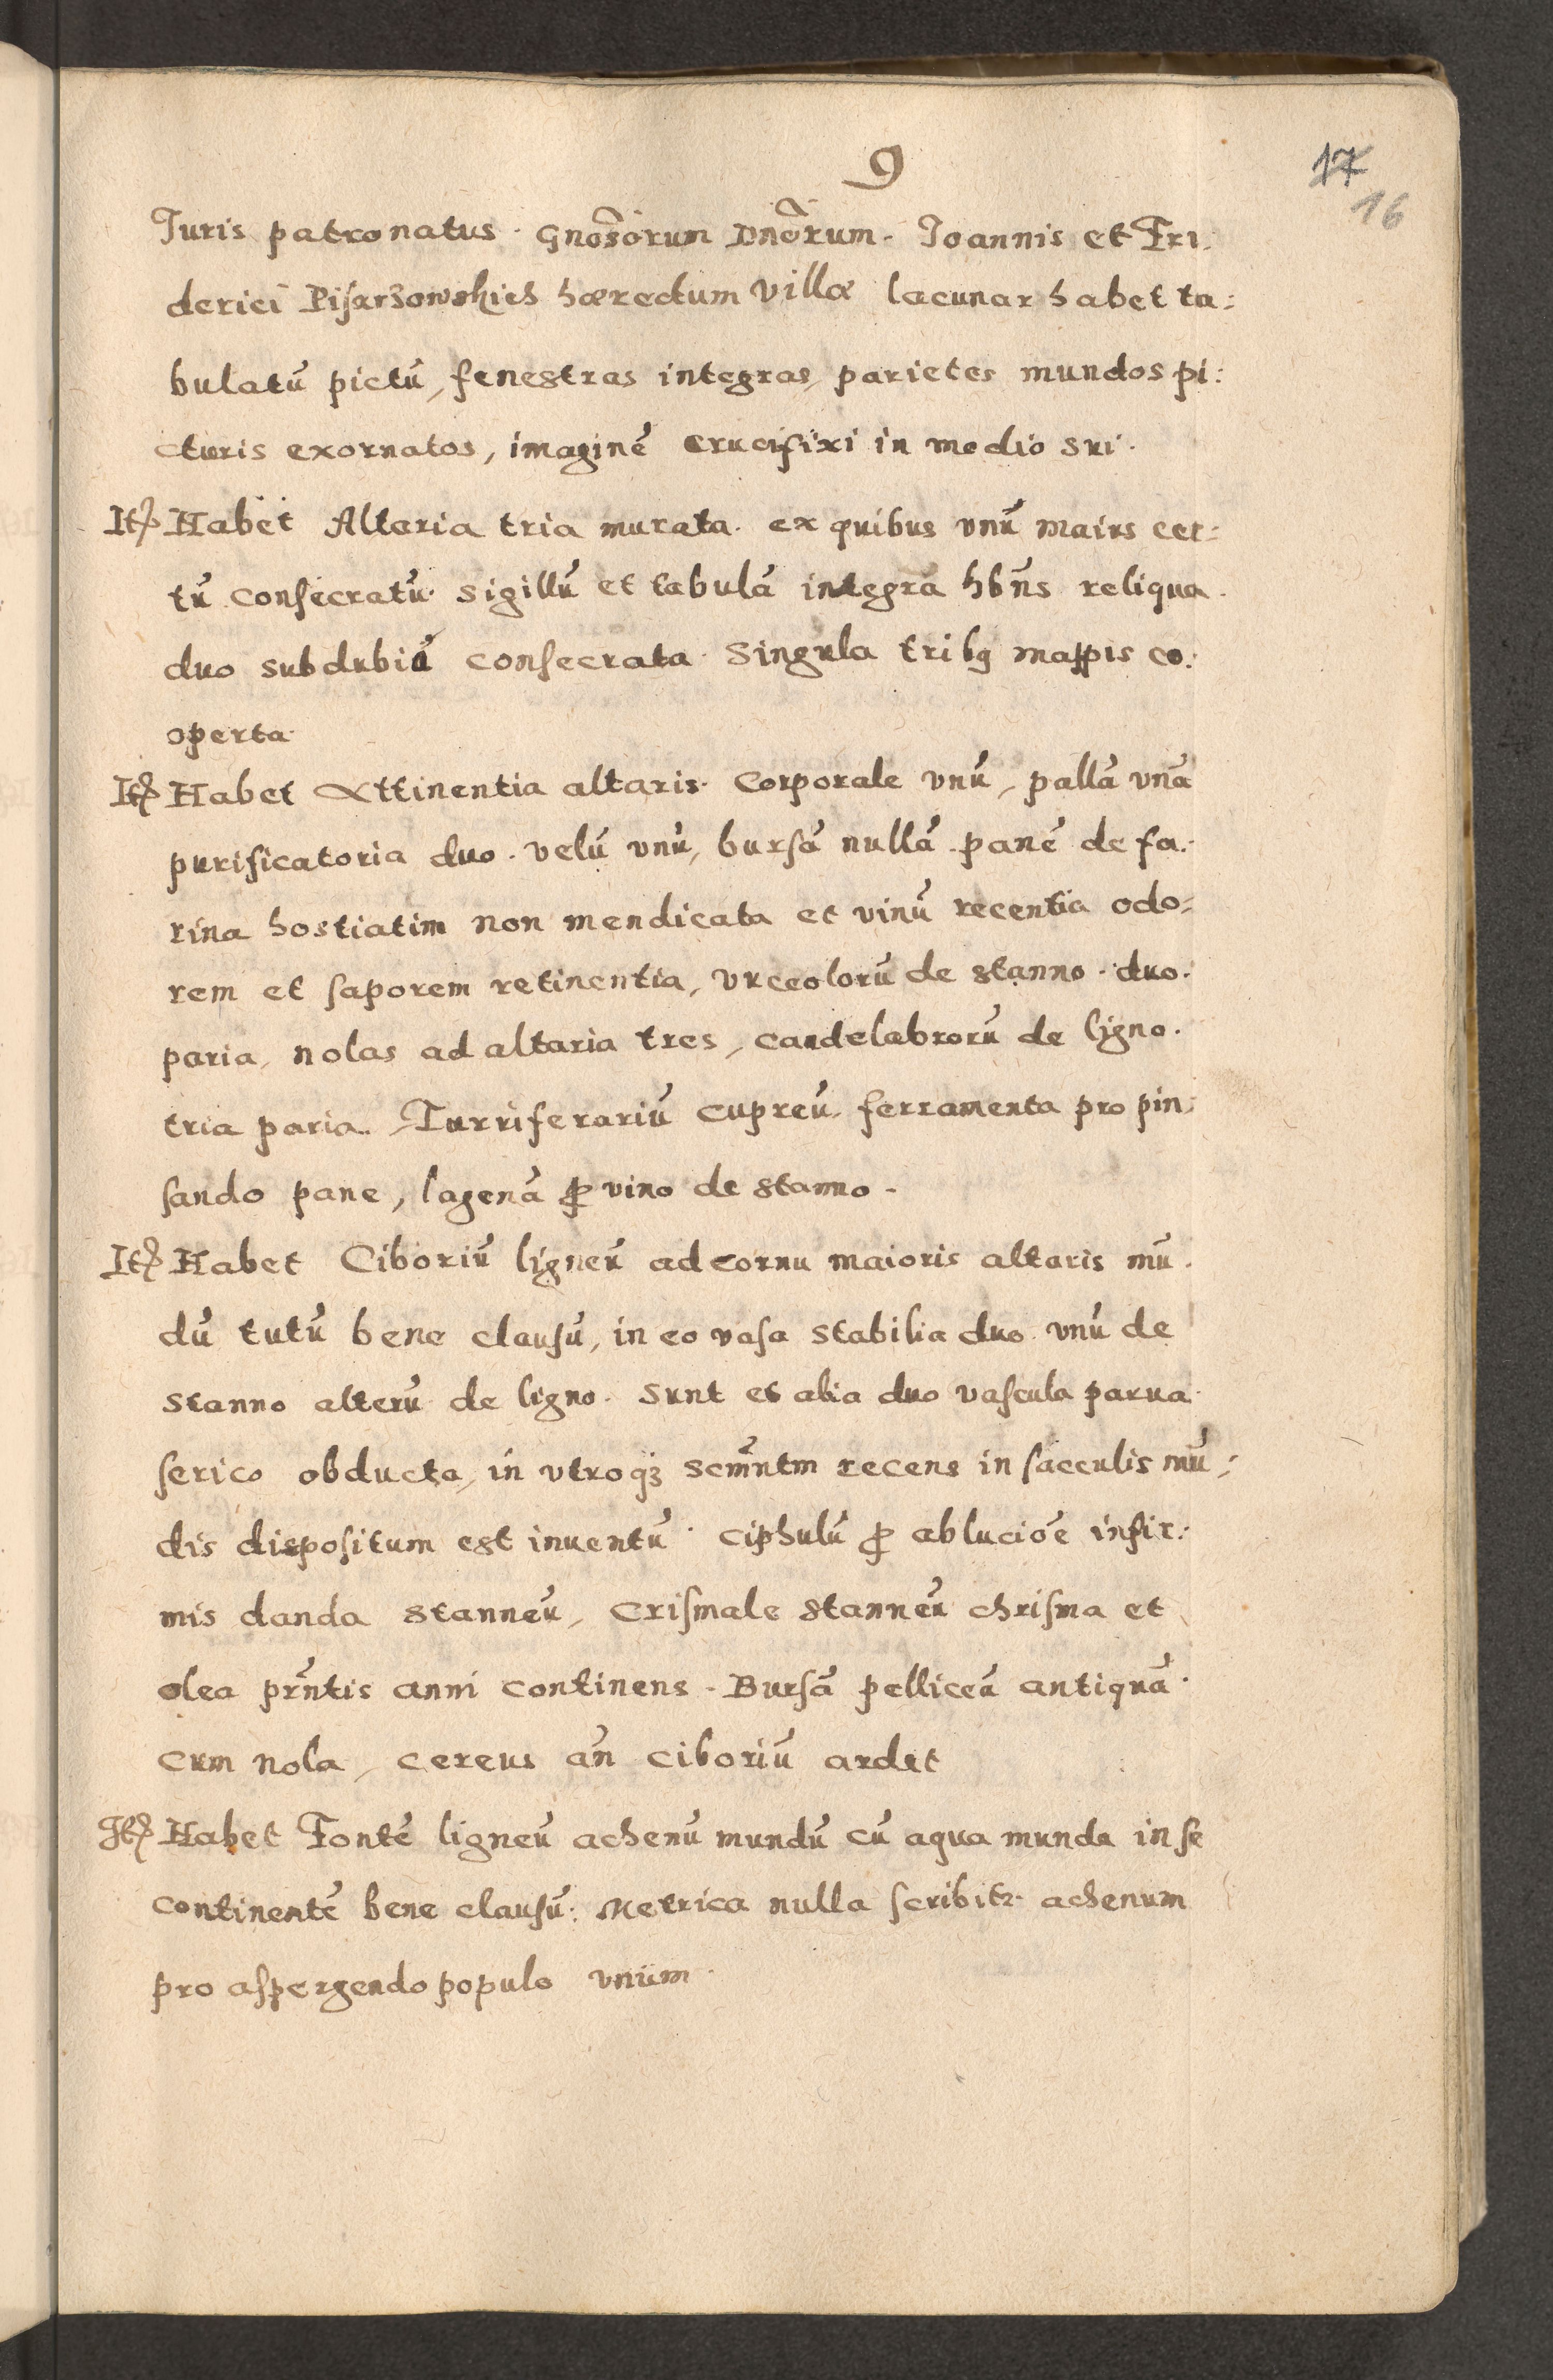 9
17
16
Juris patronatus. Gnosorum Dnorum. Joannis et Fri.
derici Pisarzowskich hæredum Villæ lacunar habet ta:
bulatū pictū, fenestras integras, parietes mundos pi:
cturis exornatos, imaginē crucifixi in medio sui.
Itē Habet Altaria tria murata. ex quibus vnū maius cer:
tū consecratū. sigillū et tabulā integrā hbñs reliqua.
duo subdubiā consecrata. Singula tribꝰ mappis co:
operta.
Itē Habet Attinentia altaris. Corporale vnū, pallā vnā
purificatoria duo. velū vnū, bursā nullā. panē de fa:
rina hostiatim non mendicata et vinū recentia odo:
rem et saporem retinentia, vrceolorū de stanno. duo.
paria, nolas ad altaria tres, candelabrorū de ligno.
tria paria. Turriferariū cupreū. ferramenta pro pin:
sando pane, lagenā ꝓ vino de stanno.
Itē Habet Ciboriū ligneū ad cornu maioris altaris mū.
dū tutū bene clausū, in eo vasa stabilia duo. vnū de
stanno alterū de ligno. sunt et alia duo vascula parua.
serico obducta, in vtroqꝫ scm̃ntm recens in sacculis mū:
dis dispositum est inuentū. ciphulū ꝓ ablucioē infir:
mis danda stanneū, Crismale stanneū chrisma et
olea prñtis anni continens. Bursā pelliceā antiquā.
cum nola, cereus añ ciboriū ardet
Itē Habet Fontē ligneū achenū mundū cū aqua munda in se
continentē bene clausū: Metrica nulla scribitr. achenum
pro aspergendo populo vnum.